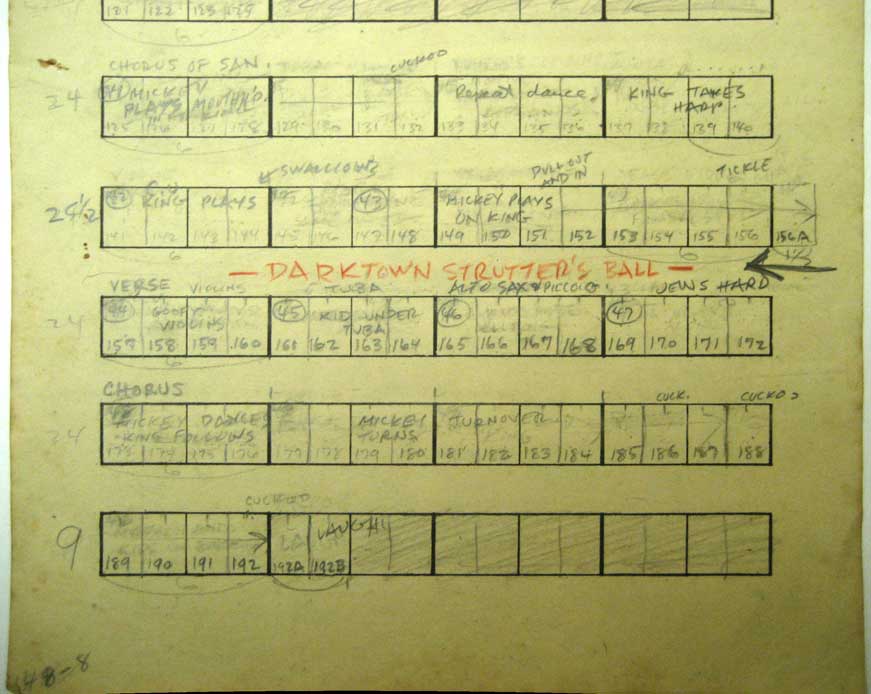 121 122 123 124
6
CHORUS OF SAN.
CUCKOO
24
MICKEY
PLAYS MOUTH'O.
Repeat dance.
KING TAKES
HARP.
125 126 127 128 129 130 131 132 133 134 135 136 137 138 139 140
6
SWALLOWS
PULL OUT
AND IN
TICKLE
42 KING PLAYS
43
MICKEY PLAYS
ON KING
141 142 143 144 145 146 147 148 149 150 151 152 153 154 155 156 156A
6 6 1½
— DARKTOWN STRUTTER'S BALL —
VERSE VIOLINS TUBA ALTO SAX & PICCOLO JEWS HARD
24
44 GOOFY
VIOLINS
45 KID UNDER
TUBA
46
47
157 158 159 160 161 162 163 164 165 166 167 168 169 170 171 172
6
CHORUS
CUCK. CUCKOO
24
MICKEY DANCES
KING FOLLOWS
MICKEY
TURNS
TURNOVER
173 174 175 176 177 178 179 180 181 182 183 184 185 186 187 188
6
CUCKOO
9
LAUGH
189 190 191 192 192A 192B
6
48-8